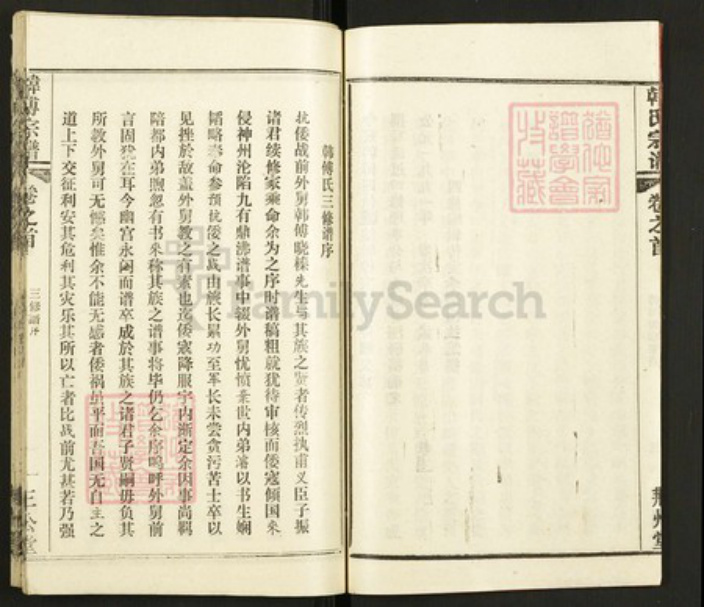 韩氏宗谱
卷之首
荆州堂
韩傅氏三修谱序
抗倭战前外舅韩傅晓 先生与其族之贤者传烈执甫义臣子振
诸君续修家乘命余为之序时谱稿粗就犹待审核而倭寇倾国来
侵神州沦陷九有鼎沸谱事中辍外舅忧愤弃世内弟 以书生娴
韬略奉命参预抗倭之战由族长累功至军长未尝贪污苦士卒以
见挫於敌盖外舅教之有素也迄倭寇降服宇内渐定余因事尚羁
陪都内弟 忽有书来称其族之谱事将毕仍乞余序呜呼外舅前
言固犹在耳今幽宫永闭而谱卒成於其族之诸君子贤嗣毋负其
所教外舅可无憾矣惟余不能无感者倭祸虽平而吾国无自主之
道上下交征利安其危利其灾乐其所以亡者比战前尤甚若乃强
韩傅宗谱
卷之首
三修谱序
一
三公堂
FamilySearch